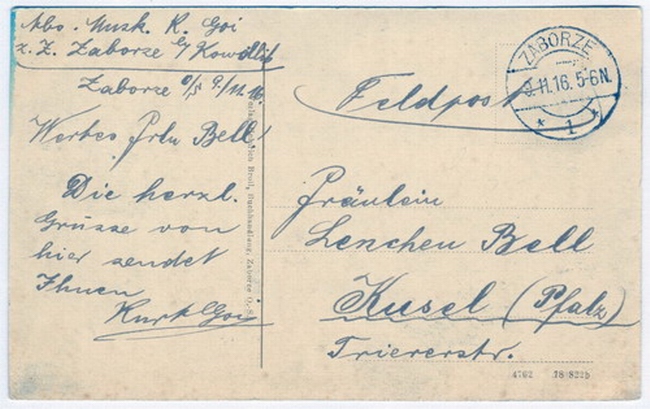 Abs. Musk. K. Goi
z. Z. Zaborze b/
Zaborze O/S 9./11.16.
Wertes Frln Bell!
Die herzl.
Grüsse von
hier sendet
Ihnen
Kurt Goi
Buchhandlung, Zaborze O.-S.
ZABORZE
9.11.16.5-6N.
* 1 *
Feldpost
Fräulein
Lenchen Bell
Kusel (Pfalz)
Triererstr.
4762 78 822b